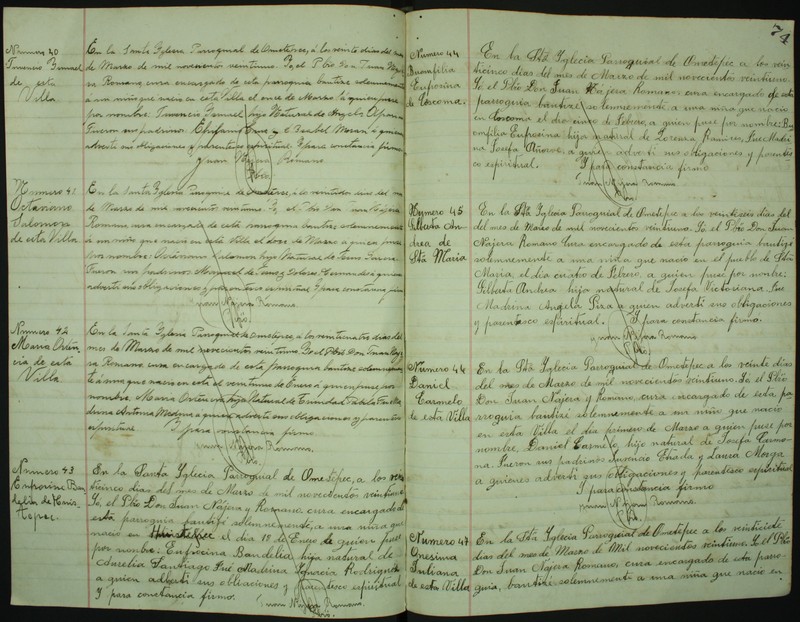 Numero 40
de esta
Villa
En la Santa Yglesia Parroquial de Ometepec, á los veinte dias del mes
de Marzo de mil novecientos veintiuno. Yo, el Pbro Don Juan
Romano cura encargado de esta parroquia bautizé solemnemente
á un niño que nació en esta Villa el once de Marzo á quien puse
por nombre: hijo Natural de
Fueron sus padrinos y Isabel á quienes
advertí sus obligaciones y parentesco espiritual. Y para constancia firmo
Juan Najera Romano
Pbro.
Numero 41
Octaviano
Salomon
de esta Villa
En la Santa Yglesia Parroquial de Ometepec, á los dias del mes
de Marzo de mil novecientos veintiuno. Yo, el Pbro Don Juan Najera
Romano cura encargado de esta parroquia bautizé solemnemente
á un niño que nació en esta Villa el doce de Marzo á quien puse
por nombre: Octaviano Salomon hijo Natural de
Fueron sus padrinos: Manuel de Jesus y Dolores Hernandez á quienes
advertí sus obligaciones y parentesco espiritual. Y para constancia firmo
Juan Najera Romano
Pbro.
Numero 42
Maria Orten
cia de esta
Villa
En la Santa Yglesia Parroquial de Ometepec, á los veinticuatro dias del
mes de Marzo de mil novecientos veintiuno Yo el Pbro Don Juan Naje
ra Romano cura encargado de esta parroquia bautizé solemnemen
te á una que nació en esta el veintiuno de Enero á quien puse por
nombre Maria Ortencia hija Natural de Trinidad Fue Ma
drina Antonia Medina á quien advertí sus obligaciones y parentesco
espiritual Y para constancia firmo
Juan Najera Romano.
Pbro.
Numero 43
Eufrocina Ban
delia de Huis
tepec.
En la Santa Yglecia Parroquial de Ometepec, a los
cinco dias del mes de Marzo de mil novecientos veintiuno
Yo, el Pbro Don Juan Najera y Romano, cura encargado de
esta parroquia bautizé solemnemente, a una niña que
nació en Huistepec el dia 18 de Enero de quien puse
por nombre: Eufrocina Bandelia hija natural de
Aurelia Santiago Fué Madrina Ygnacia Rodriguez
a quien advertí sus obligaciones y parentesco espiritual
Y para constancia firmo.
Juan Najera Romano.
Pbro.
74
Numero 44
Buenfilia
Eufrosina
de Coscoma.
En la Sta Yglecia Parroquial de Ometepec a los vein
ticinco dias del mes de Marzo de mil novecientos veintiuno.
Yo el Pbro Don Juan Najera Romano cura encargado de esta
parroquia bautizé solemnemente a una niña que nació
en Coscoma el dia cinco de Febrero, a quien puse por nombre: Bu
enfilia Eufrosina hija natural de Lorenza Ramires, Fue Madri
na Josefa Añorve, a quien advertí sus obligaciones y parentes
co espiritual. Y para constancia firmo
Juan Najera Romano
Numero 45
Gilberta An
drea de
Sta Maria
En la Sta Yglecia Parroquial de Ometepec a los veintiseis dias del
del mes de Marzo de mil novecientos veintiuno. Yo el Pbro Don Juan
Najera Romano Cura encargado de esta parroquia bautizé
solemnemente a una niña que nació en el pueblo de Sta
Maria, el dia cuatro de Febrero, a quien puse por nombre:
Gilberta Andrea hija natural de Josefa Victoriana, Fue
Madrina Angela Piza a quien advertí sus obligaciones
y parentesco espiritual. Y para constancia firmo.
Juan Najera Romano
Pbro.
Numero 46
Daniel
Carmelo
de esta Villa
En la Sta Yglecia Parroquial de Ometepec a los veinte dias
del mes de Marzo de mil novecientos veintiuno. Yo el Pbro
Don Juan Najera y Romano, cura encargado de esta pa
rroquia bautizé solemnemente a un niño que nació
en esta Villa el dia primero de Marzo a quien puse por
nombre, Daniel Carmelo, hijo natural de Josefa Carmo
na. Fueron sus padrinos y Laura Morga
a quienes advertí sus obligaciones y parentesco espiritual
Y para constancia firmo
Juan Najera Romano.
Pbro.
Numero 47
Onesima
Juliana
de esta Villa
En la Sta Yglecia Parroquial de Ometepec a los veintisiete
dias del mes de Marzo de Mil novecientos veintiuno. Yo el Pbro
Don Juan Najera Romano, cura encargado de esta parro
quia, bautizé solemnemente a una niña que nació en